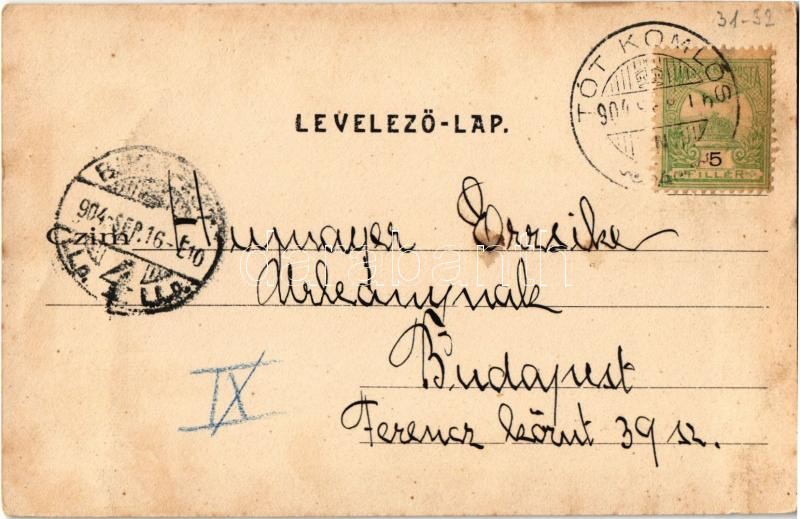 31-32
TÓT KOMLÓS
904
POSTA
5
FILLÉR
LEVELEZŐ-LAP.
904 SEP. 16 E10
Czim Hunmayer Erzsike
Urleánynak
Budapest
IX
Ferencz körut 39 sz.
darabanth